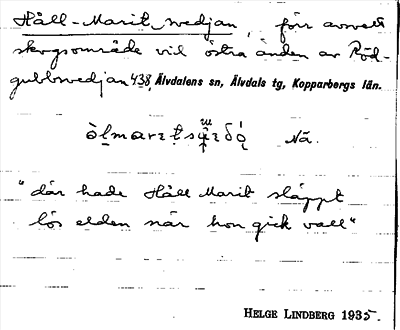 Håll-Marit_svedjan, förr avsvett
skogsområde vid östra änden av Röd-
gubbsvedjan 438, Älvdalens sn, Älvdals tg, Kopparbergs län.
Nä.
"där hade Håll Marit släppt
lös elden när hon gick vall"
HELGE LINDBERG 1935.